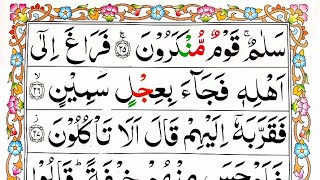 سَلٰمٌ ۚ قَوْمٌ مُّنْكَرُوْنَ ﴿۲۵﴾ فَرَاغَ اِلٰۤى
اَهْلِهٖ فَجَآءَ بِعِجْلٍ سَمِيْنٍ ﴿۲۶﴾
فَقَرَّبَهٗۤ اِلَيْهِمْ قَالَ اَلَا تَاْكُلُوْنَ ﴿۲۷﴾
فَاَوْجَسَ مِنْهُمْ خِيْفَةً ؕ قَالُوْا